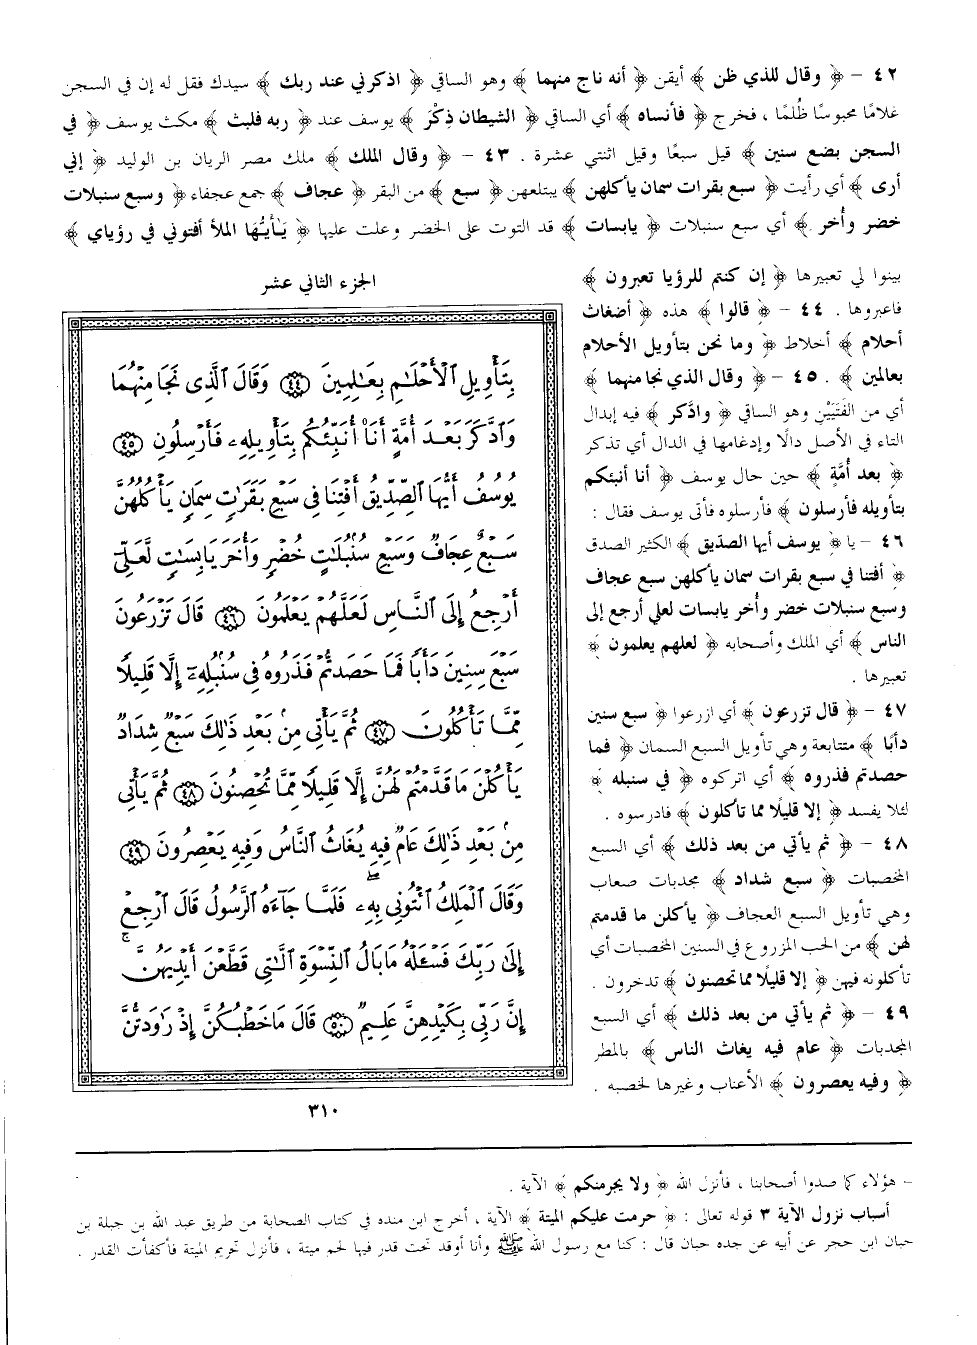 ٤٢ - ﴿ وقال للذي ظن ﴾ أيقن ﴿ أنه ناج منهما ﴾ وهو الساقي ﴿ اذكرني عند ربك ﴾ سيدك فقل له إن في السجن
غلامًا محبوسًا ظُلمًا ، فخرج ﴿ فأنساه ﴾ أي الساقي ﴿ الشيطان ذِكْرَ ﴾ يوسف عند ﴿ ربه فلبث ﴾ مكث يوسف ﴿ في
السجن بضع سنين ﴾ قيل سبعًا وقيل اثنتي عشرة . ٤٣ - ﴿ وقال الملك ﴾ ملك مصر الريان بن الوليد ﴿ إني
أرى ﴾ أي رأيت ﴿ سبع بقرات سمان يأكلهن ﴾ يبتلعهن ﴿ سبع ﴾ من البقر ﴿ عجاف ﴾ جمع عجفاء ﴿ وسبع سنبلات
خضر وأُخر ﴾ أي سبع سنبلات ﴿ يابسات ﴾ قد التوت على الخضر وعلت عليها ﴿ يَـٰأيُّها الملأ أفتوني في رؤياي ﴾
بينوا لي تعبيرها ﴿ إن كنتم للرؤيا تعبرون ﴾
فاعبروها . ٤٤ - ﴿ قالوا ﴾ هذه ﴿ أضغاث
أحلام ﴾ أخلاط ﴿ وما نحن بتأويل الأحلام
بعالمين ﴾ . ٤٥ - ﴿ وقال الذي نجا منهما ﴾
أي من الفَتَيَيْنِ وهو الساقي ﴿ وادَّكر ﴾ فيه إبدال
التاء في الأصل دالًا وإدغامها في الدال أي تذكر
﴿ بعد أُمَّةٍ ﴾ حين حال يوسف ﴿ أنا أنبئكم
بتأويله فأرسلون ﴾ فأرسلوه فأتى يوسف فقال :
٤٦ - يا ﴿ يوسف أيها الصدّيق ﴾ الكثير الصدق
﴿ أفتنا في سبع بقرات سمان يأكلهن سبع عجاف
وسبع سنبلات خضر وأُخر يابسات لعلي أرجع إلى
الناس ﴾ أي الملك وأصحابه ﴿ لعلهم يعلمون ﴾
تعبيرها .
٤٧ - ﴿ قال تزرعون ﴾ أي ازرعوا ﴿ سبع سنين
دأبًا ﴾ متتابعة وهي تأويل السبع السمان ﴿ فما
حصدتم فذروه ﴾ أي اتركوه ﴿ في سنبله ﴾
لئلا يفسد ﴿ إلا قليلًا مما تأكلون ﴾ فادرسوه .
٤٨ - ﴿ ثم يأتي من بعد ذلك ﴾ أي السبع
المخصبات ﴿ سبع شداد ﴾ مجدبات صعاب
وهي تأويل السبع العجاف ﴿ يأكلن ما قدمتم
لهن ﴾ من الحب المزروع في السنين المخصبات أي
تأكلونه فيهن ﴿ إلا قليلًا مما تحصنون ﴾ تدخرون .
٤٩ - ﴿ ثم يأتي من بعد ذلك ﴾ أي السبع
المجدبات ﴿ عام فيه يغاث الناس ﴾ بالمطر
﴿ وفيه يعصرون ﴾ الأعناب وغيرها لخصبه .
الجزء الثاني عشر
بِتَأْوِيلِ ٱلْأَحْلَـٰمِ بِعَـٰلِمِينَ ﴿٤٤﴾ وَقَالَ ٱلَّذِى نَجَا مِنْهُمَا
وَٱدَّكَرَ بَعْدَ أُمَّةٍ أَنَا۠ أُنَبِّئُكُم بِتَأْوِيلِهِۦ فَأَرْسِلُونِ ﴿٤٥﴾
يُوسُفُ أَيُّهَا ٱلصِّدِّيقُ أَفْتِنَا فِى سَبْعِ بَقَرَٰتٍ سِمَانٍ يَأْكُلُهُنَّ
سَبْعٌ عِجَافٌ وَسَبْعِ سُنۢبُلَـٰتٍ خُضْرٍ وَأُخَرَ يَابِسَـٰتٍ لَّعَلِّىٓ
أَرْجِعُ إِلَى ٱلنَّاسِ لَعَلَّهُمْ يَعْلَمُونَ ﴿٤٦﴾ قَالَ تَزْرَعُونَ
سَبْعَ سِنِينَ دَأَبًا فَمَا حَصَدتُّمْ فَذَرُوهُ فِى سُنۢبُلِهِۦٓ إِلَّا قَلِيلًا
مِّمَّا تَأْكُلُونَ ﴿٤٧﴾ ثُمَّ يَأْتِى مِنۢ بَعْدِ ذَٰلِكَ سَبْعٌ شِدَادٌ
يَأْكُلْنَ مَا قَدَّمْتُمْ لَهُنَّ إِلَّا قَلِيلًا مِّمَّا تُحْصِنُونَ ﴿٤٨﴾ ثُمَّ يَأْتِى
مِنۢ بَعْدِ ذَٰلِكَ عَامٌ فِيهِ يُغَاثُ ٱلنَّاسُ وَفِيهِ يَعْصِرُونَ ﴿٤٩﴾
وَقَالَ ٱلْمَلِكُ ٱئْتُونِى بِهِۦ ۖ فَلَمَّا جَآءَهُ ٱلرَّسُولُ قَالَ ٱرْجِعْ
إِلَىٰ رَبِّكَ فَسْـَٔلْهُ مَا بَالُ ٱلنِّسْوَةِ ٱلَّـٰتِى قَطَّعْنَ أَيْدِيَهُنَّ ۚ
إِنَّ رَبِّى بِكَيْدِهِنَّ عَلِيمٌ ﴿٥٠﴾ قَالَ مَا خَطْبُكُنَّ إِذْ رَٰوَدتُّنَّ
٣١٠
- هؤلاء كما صدوا أصحابنا ، فأنزل الله ﴿ ولا يجرمنكم ﴾ الآية .
أسباب نزول الآية ٣ قوله تعالى : ﴿ حرمت عليكم الميتة ﴾ الآية ، أخرج ابن منده في كتاب الصحابة من طريق عبد الله بن جبلة بن
حبان ابن حجر عن أبيه عن جده حبان قال : كنا مع رسول الله ﷺ وأنا أوقد تحت قدر فيها لحم ميتة ، فأنزل تحريم الميتة فأكفأت القدر .